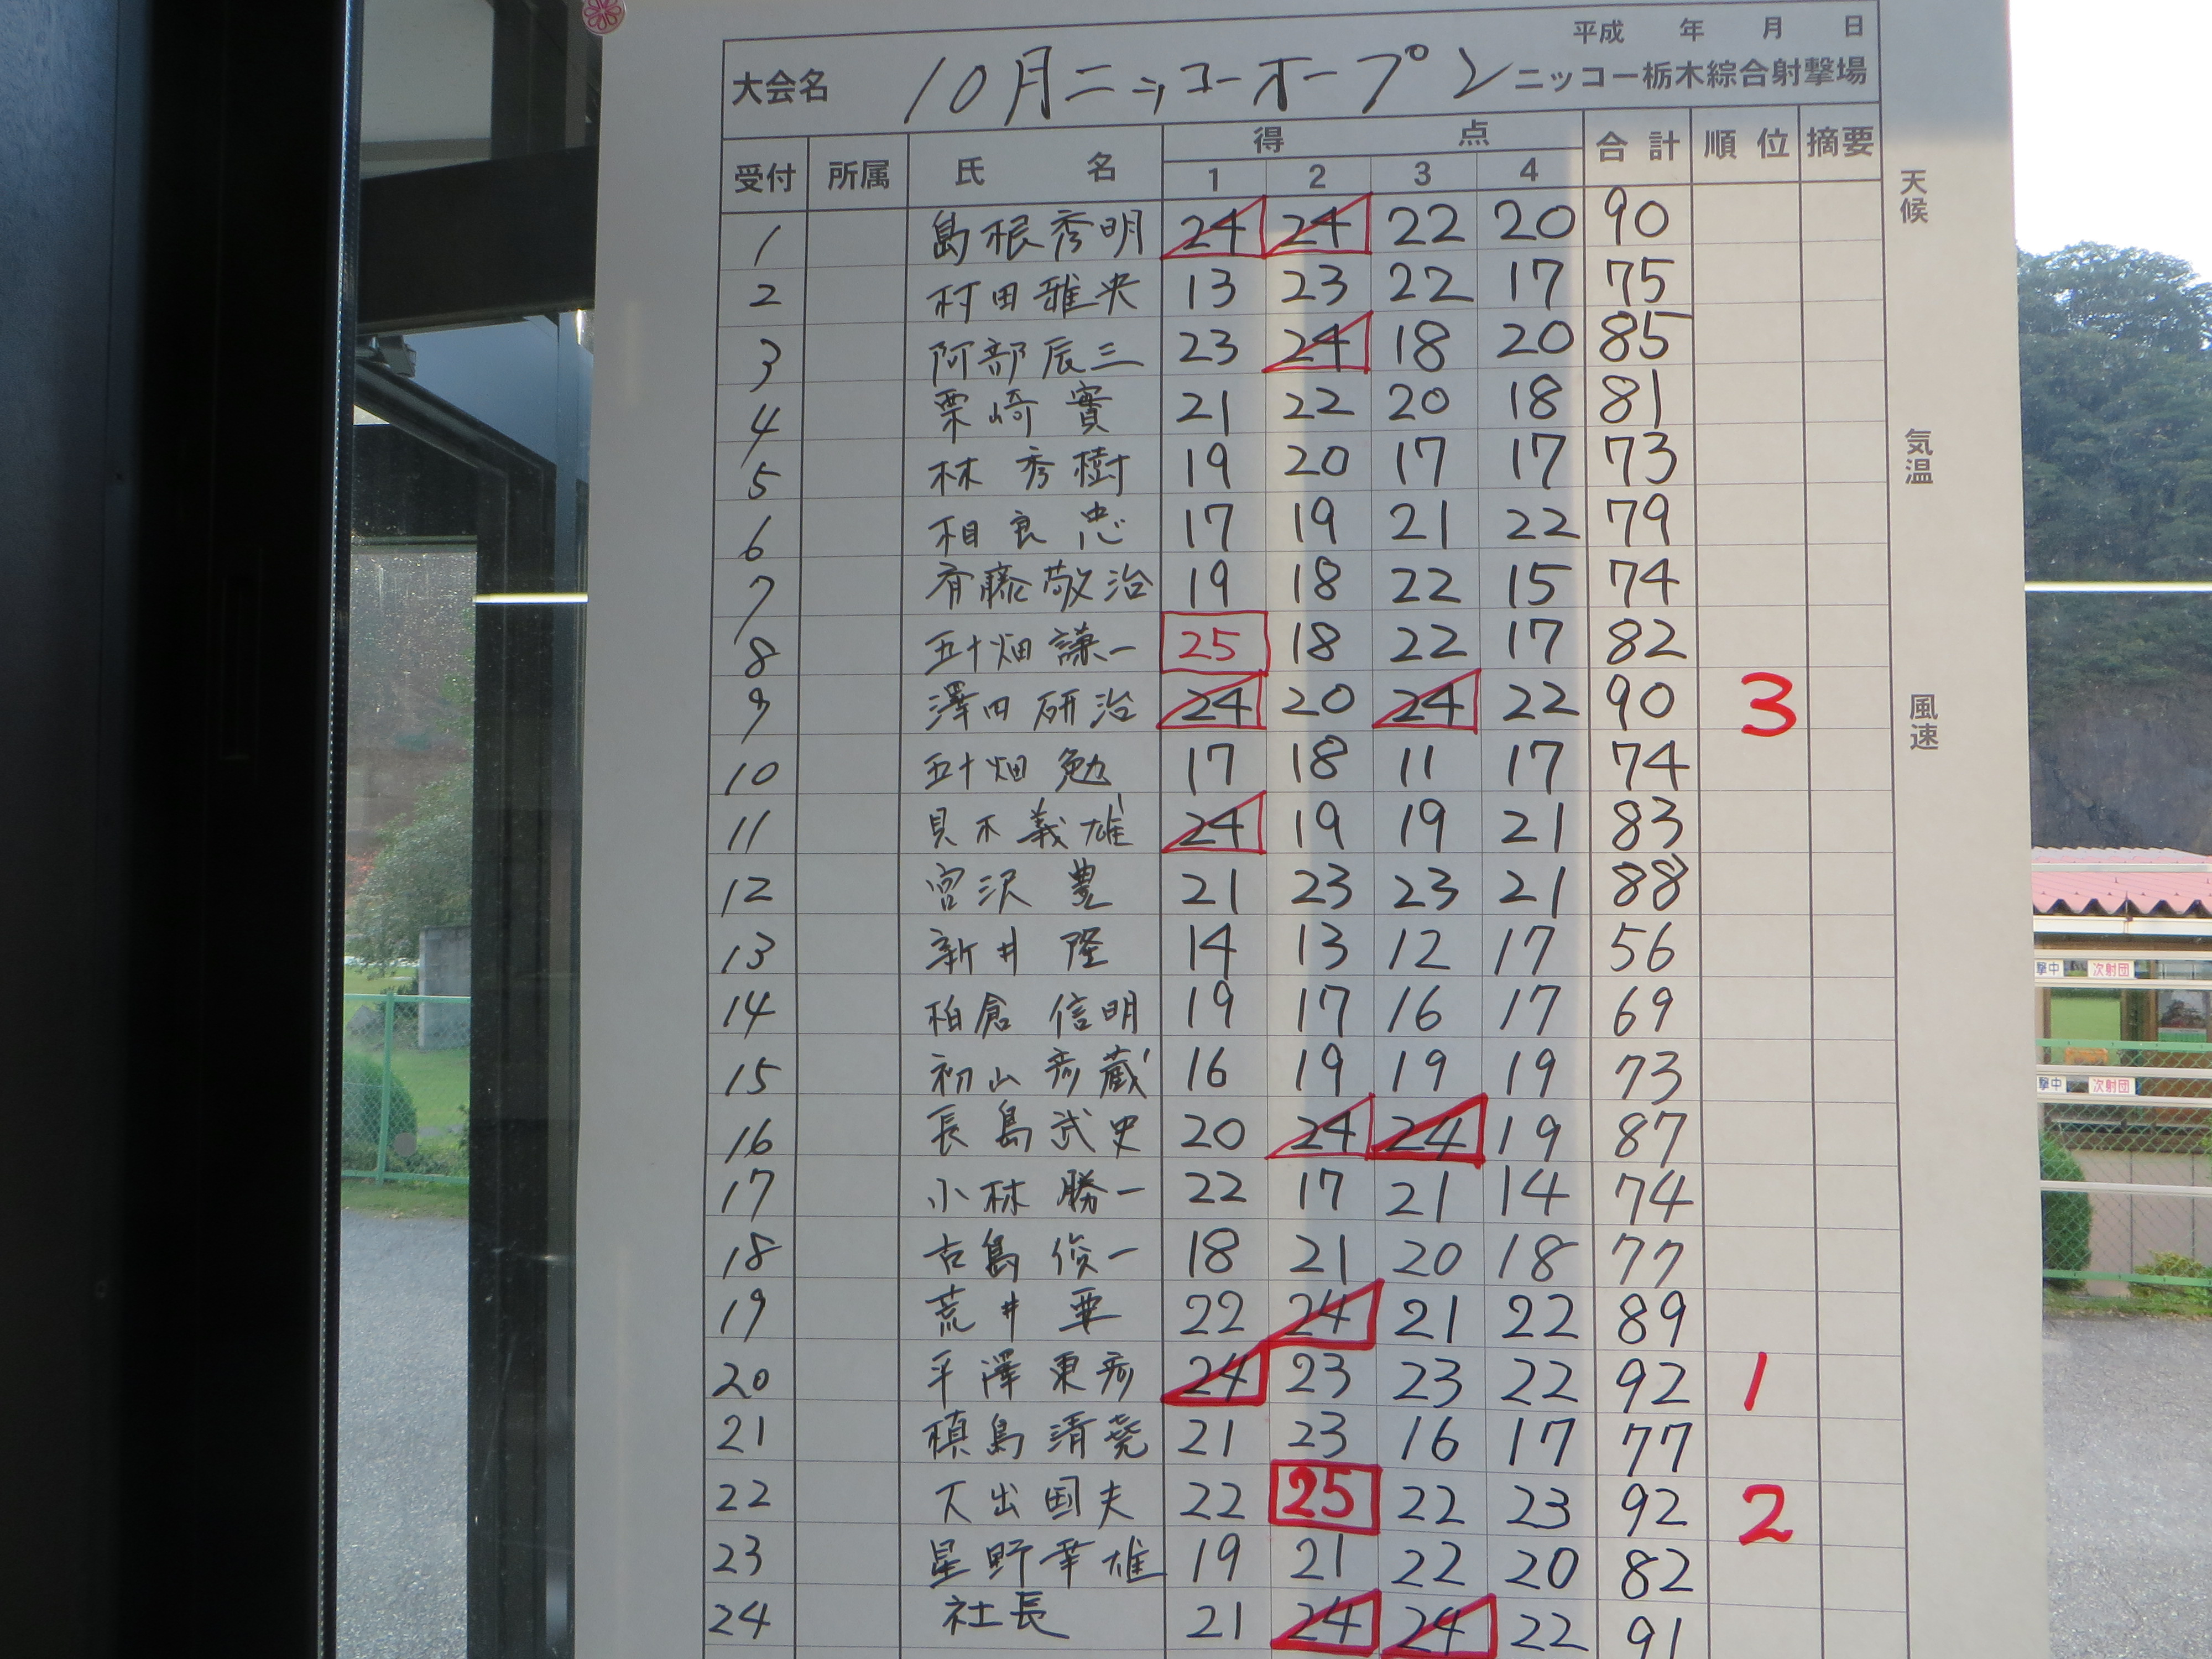 平成 年 月 日
大会名 10月ニッコーオープン ニッコー栃木綜合射撃場
受付 所属 氏名 得点 合計 順位 摘要
1 2 3 4
1 島根秀明 24 24 22 20 90
2 村田雅央 13 23 22 17 75
3 阿部辰三 23 24 18 20 85
4 栗崎實 21 22 20 18 81
5 林秀樹 19 20 17 17 73
6 相良忠 17 19 21 22 79
7 斉藤敬治 19 18 22 15 74
8 五十畑謙一 25 18 22 17 82
9 澤田研治 24 20 24 22 90 3
10 五十畑勉 17 18 11 17 74
11 貝木義雄 24 19 19 21 83
12 宮沢豊 21 23 23 21 88
13 新井隆 14 13 12 17 56
14 柏倉信明 19 17 16 17 69
15 初山彦蔵 16 19 19 19 73
16 長島武史 20 24 24 19 87
17 小林勝一 22 17 21 14 74
18 古島俊一 18 21 20 18 77
19 荒井 22 24 21 22 89
20 平澤東彦 24 23 23 22 92 1
21 槙島清尭 21 23 16 17 77
22 大出国夫 22 25 22 23 92 2
23 星野幸雄 19 21 22 20 82
24 社長 21 24 24 22 91
天候
気温
風速
撃中 次射団
撃中 次射団